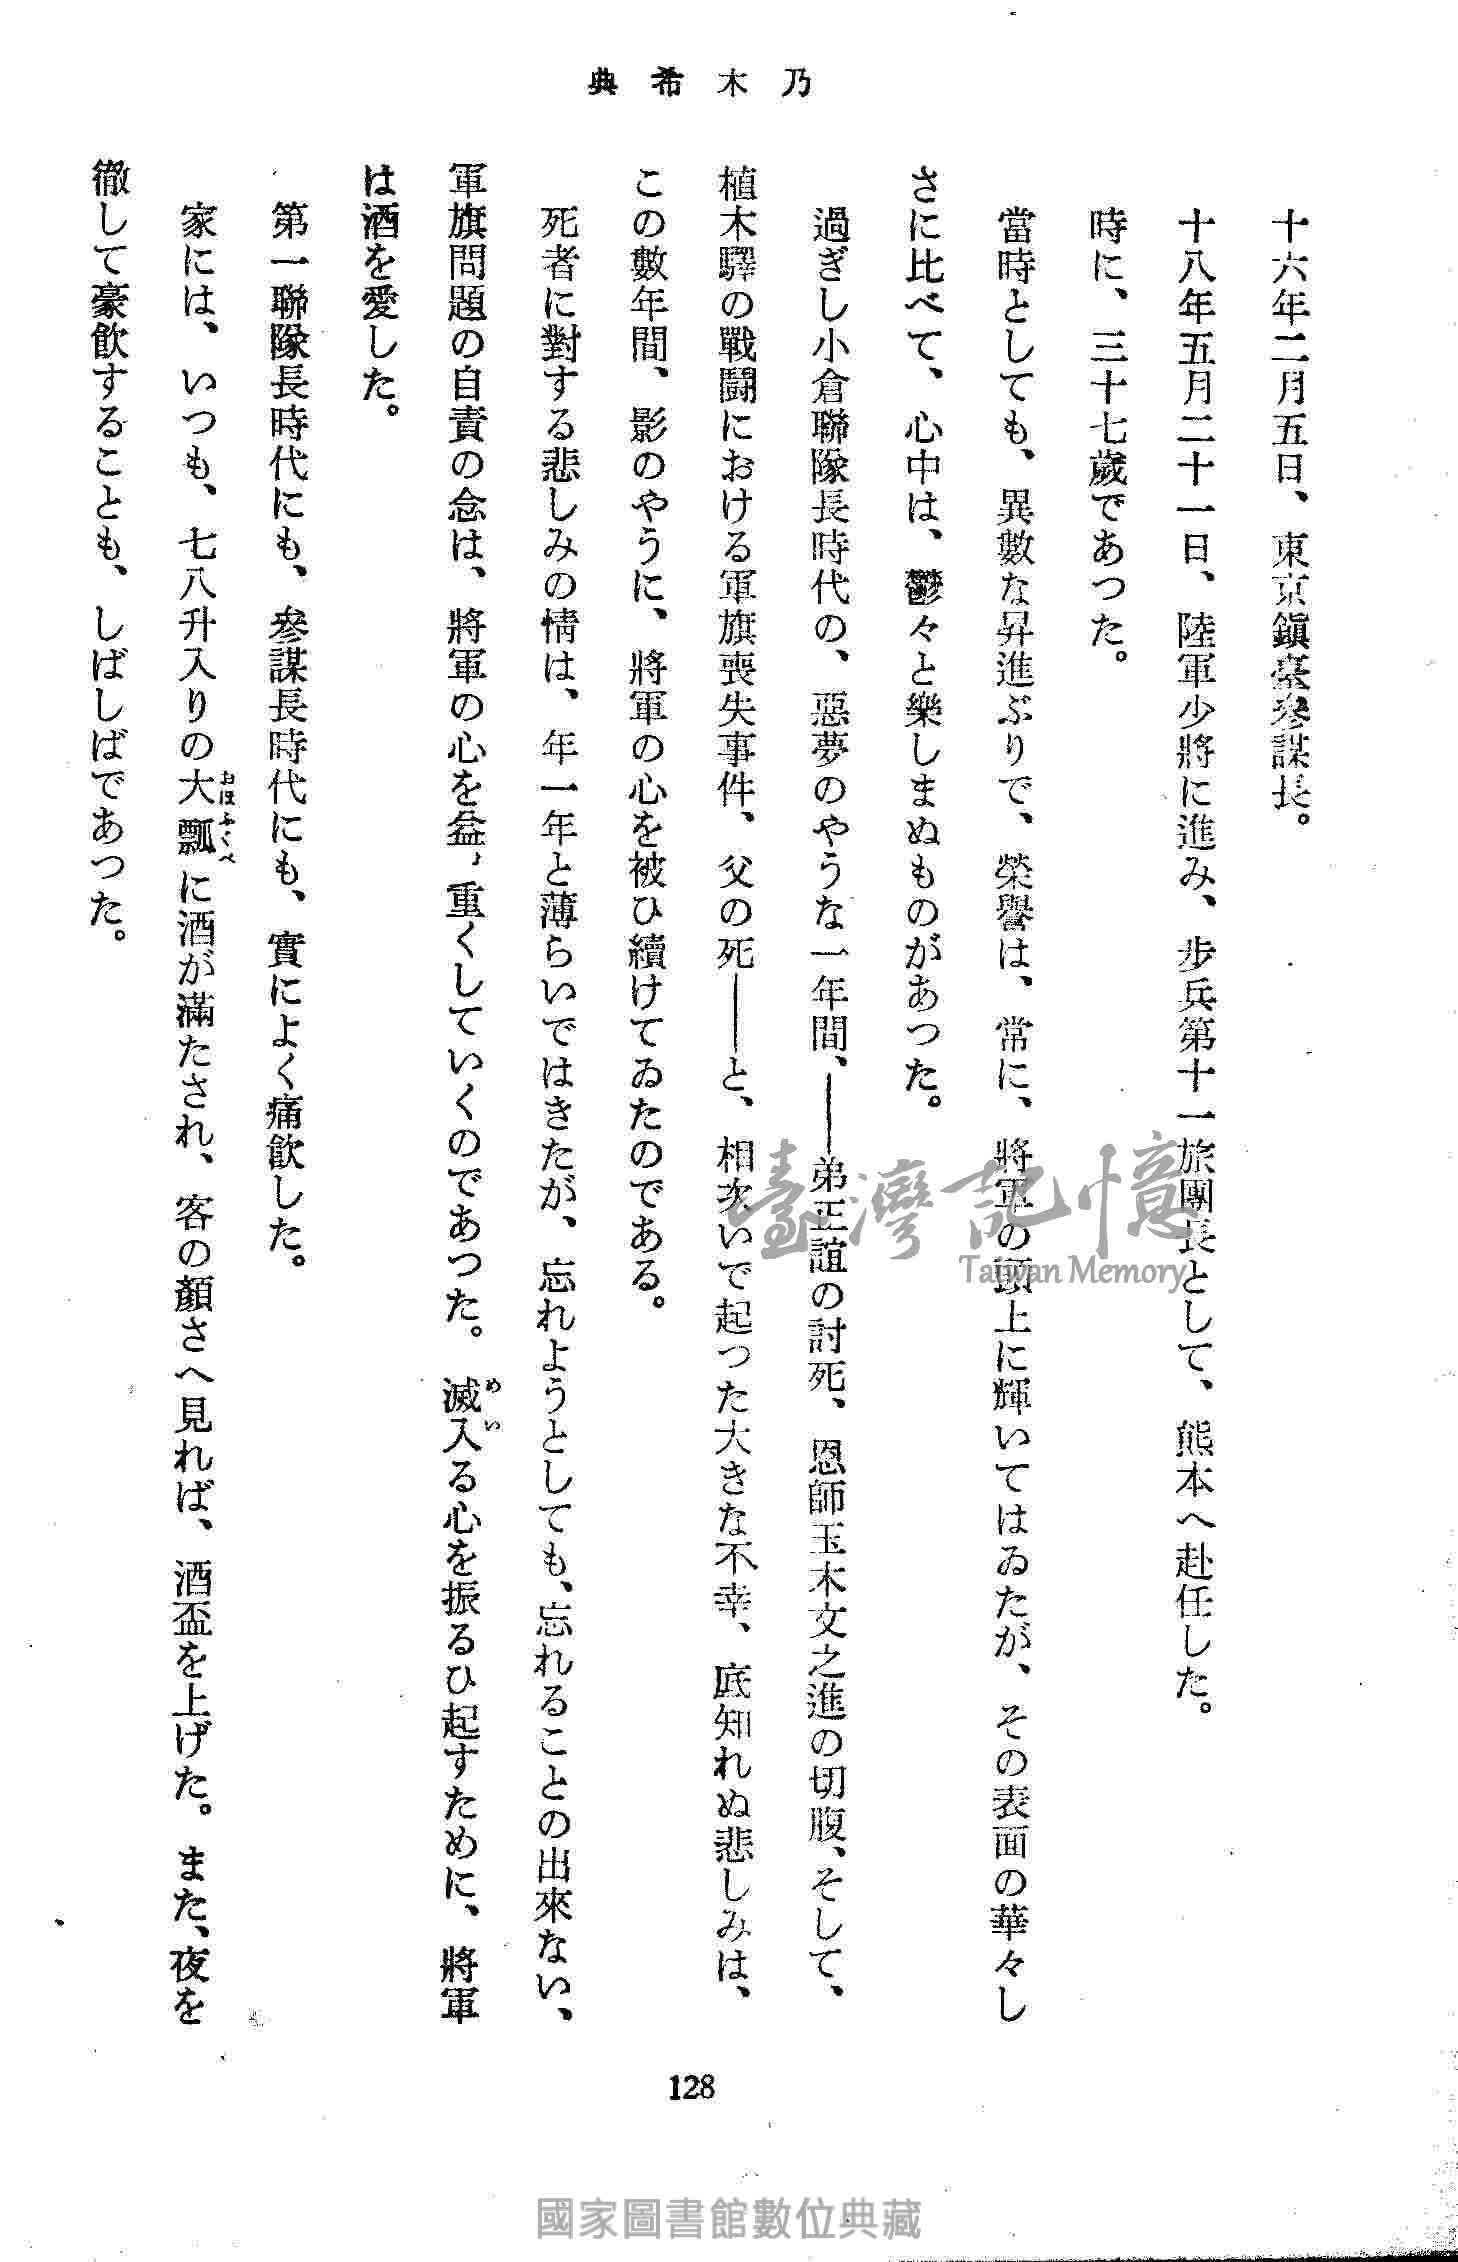 乃木希典
十六年二月五日、東京鎭臺參謀長。
十八年五月二十一日、陸軍少將に進み、步兵第十一旅團長として、熊本へ赴任した。
時に、三十七歲であつた。
當時としても、異數な昇進ぶりで、榮譽は、常に、將軍の頭上に輝いてはゐたが、その表面の華々し
さに比べて、心中は、鬱々と樂しまぬものがあつた。
過ぎし小倉聯隊長時代の、惡夢のやうな一年間、――弟正誼の討死、恩師玉木文之進の切腹、そして、
植木驛の戰鬪における軍旗喪失事件、父の死――と、相次いで起つた大きな不幸、底知れぬ悲しみは、
この數年間、影のやうに、將軍の心を被ひ續けてゐたのである。
死者に對する悲しみの情は、年一年と薄らいではきたが、忘れようとしても、忘れることの出來ない、
軍旗問題の自責の念は、將軍の心を益〻重くしていくのであつた。滅入る心を振るひ起すために、將軍
めい
は酒を愛した。
第一聯隊長時代にも、參謀長時代にも、實によく痛飮した。
家には、いつも、七八升入りの大瓢に酒が滿たされ、客の顏さへ見れば、酒盃を上げた。また、夜を
おほふくべ
徹して豪飮することも、しばしばであつた。
128
臺灣記憶
Taiwan Memory
國家圖書館數位典藏